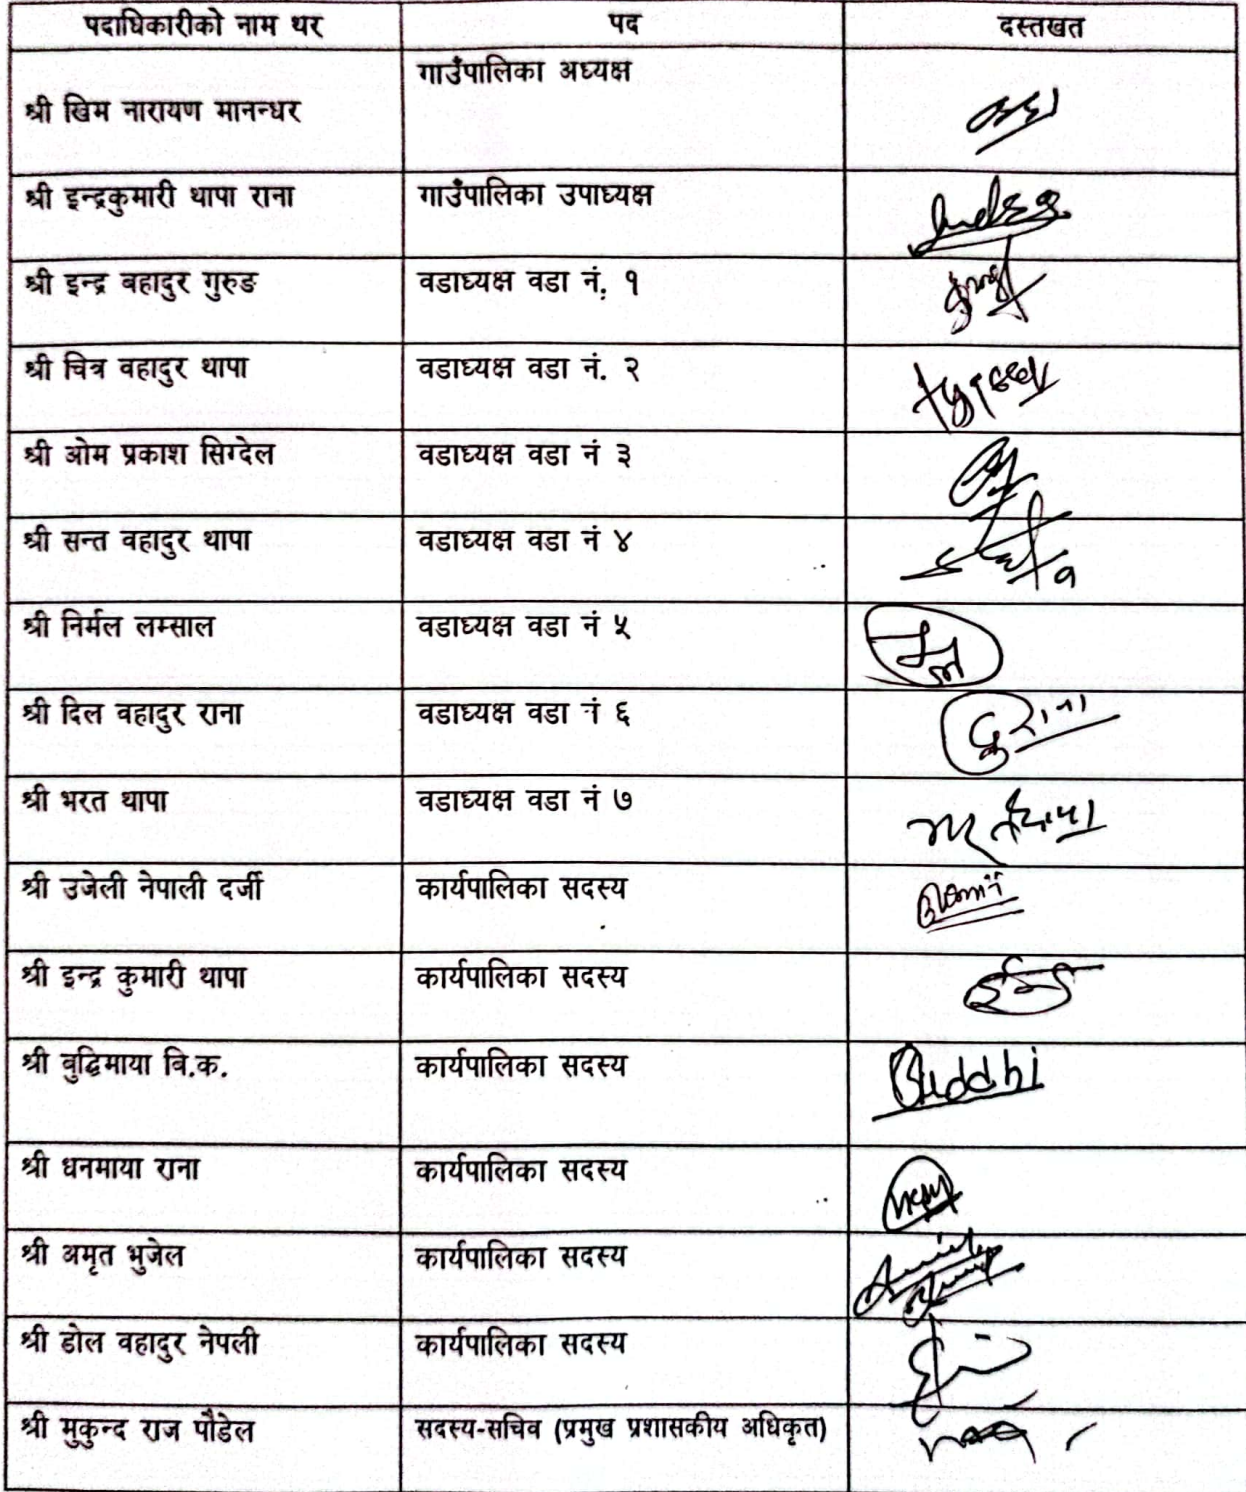 पदाधिकारीको नाम थर पद दस्तखत
गाउँपालिका अध्यक्ष
श्री खिम नारायण मानन्धर
श्री इन्द्रकुमारी थापा राना गाउँपालिका उपाध्यक्ष
श्री इन्द्र बहादुर गुरुङ वडाध्यक्ष वडा नं. १
श्री चित्र वहादुर थापा वडाध्यक्ष वडा नं. २
श्री ओम प्रकाश सिग्देल वडाध्यक्ष वडा नं ३
श्री सन्त वहादुर थापा वडाध्यक्ष वडा नं ४
श्री निर्मल लम्साल वडाध्यक्ष वडा नं ५
श्री दिल वहादुर राना वडाध्यक्ष वडा नं ६
श्री भरत थापा वडाध्यक्ष वडा नं ७
श्री उजेली नेपाली दर्जी कार्यपालिका सदस्य
श्री इन्द्र कुमारी थापा कार्यपालिका सदस्य
श्री बुद्धिमाया बि.क. कार्यपालिका सदस्य Buddhi
श्री धनमाया राना कार्यपालिका सदस्य
श्री अमृत भुजेल कार्यपालिका सदस्य
श्री डोल वहादुर नेपली कार्यपालिका सदस्य
श्री मुकुन्द राज पौडेल सदस्य-सचिव (प्रमुख प्रशासकीय अधिकृत)